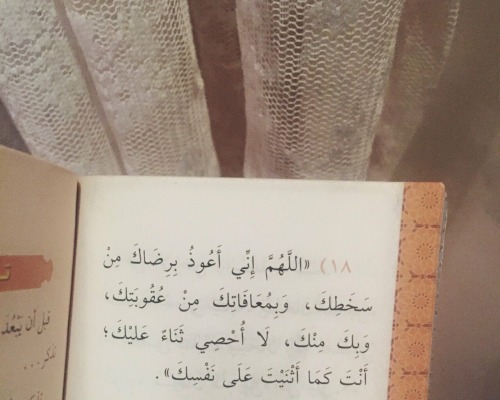 ١٨) «اللَّهُمَّ إِنِّي أَعُوذُ بِرِضَاكَ مِنْ
سَخَطِكَ، وَبِمُعَافَاتِكَ مِنْ عُقُوبَتِكَ،
وَبِكَ مِنْكَ، لَا أُحْصِي ثَنَاءً عَلَيْكَ؛
أَنْتَ كَمَا أَثْنَيْتَ عَلَى نَفْسِكَ».
قبل أن يَبْعُدَ
تذكر...